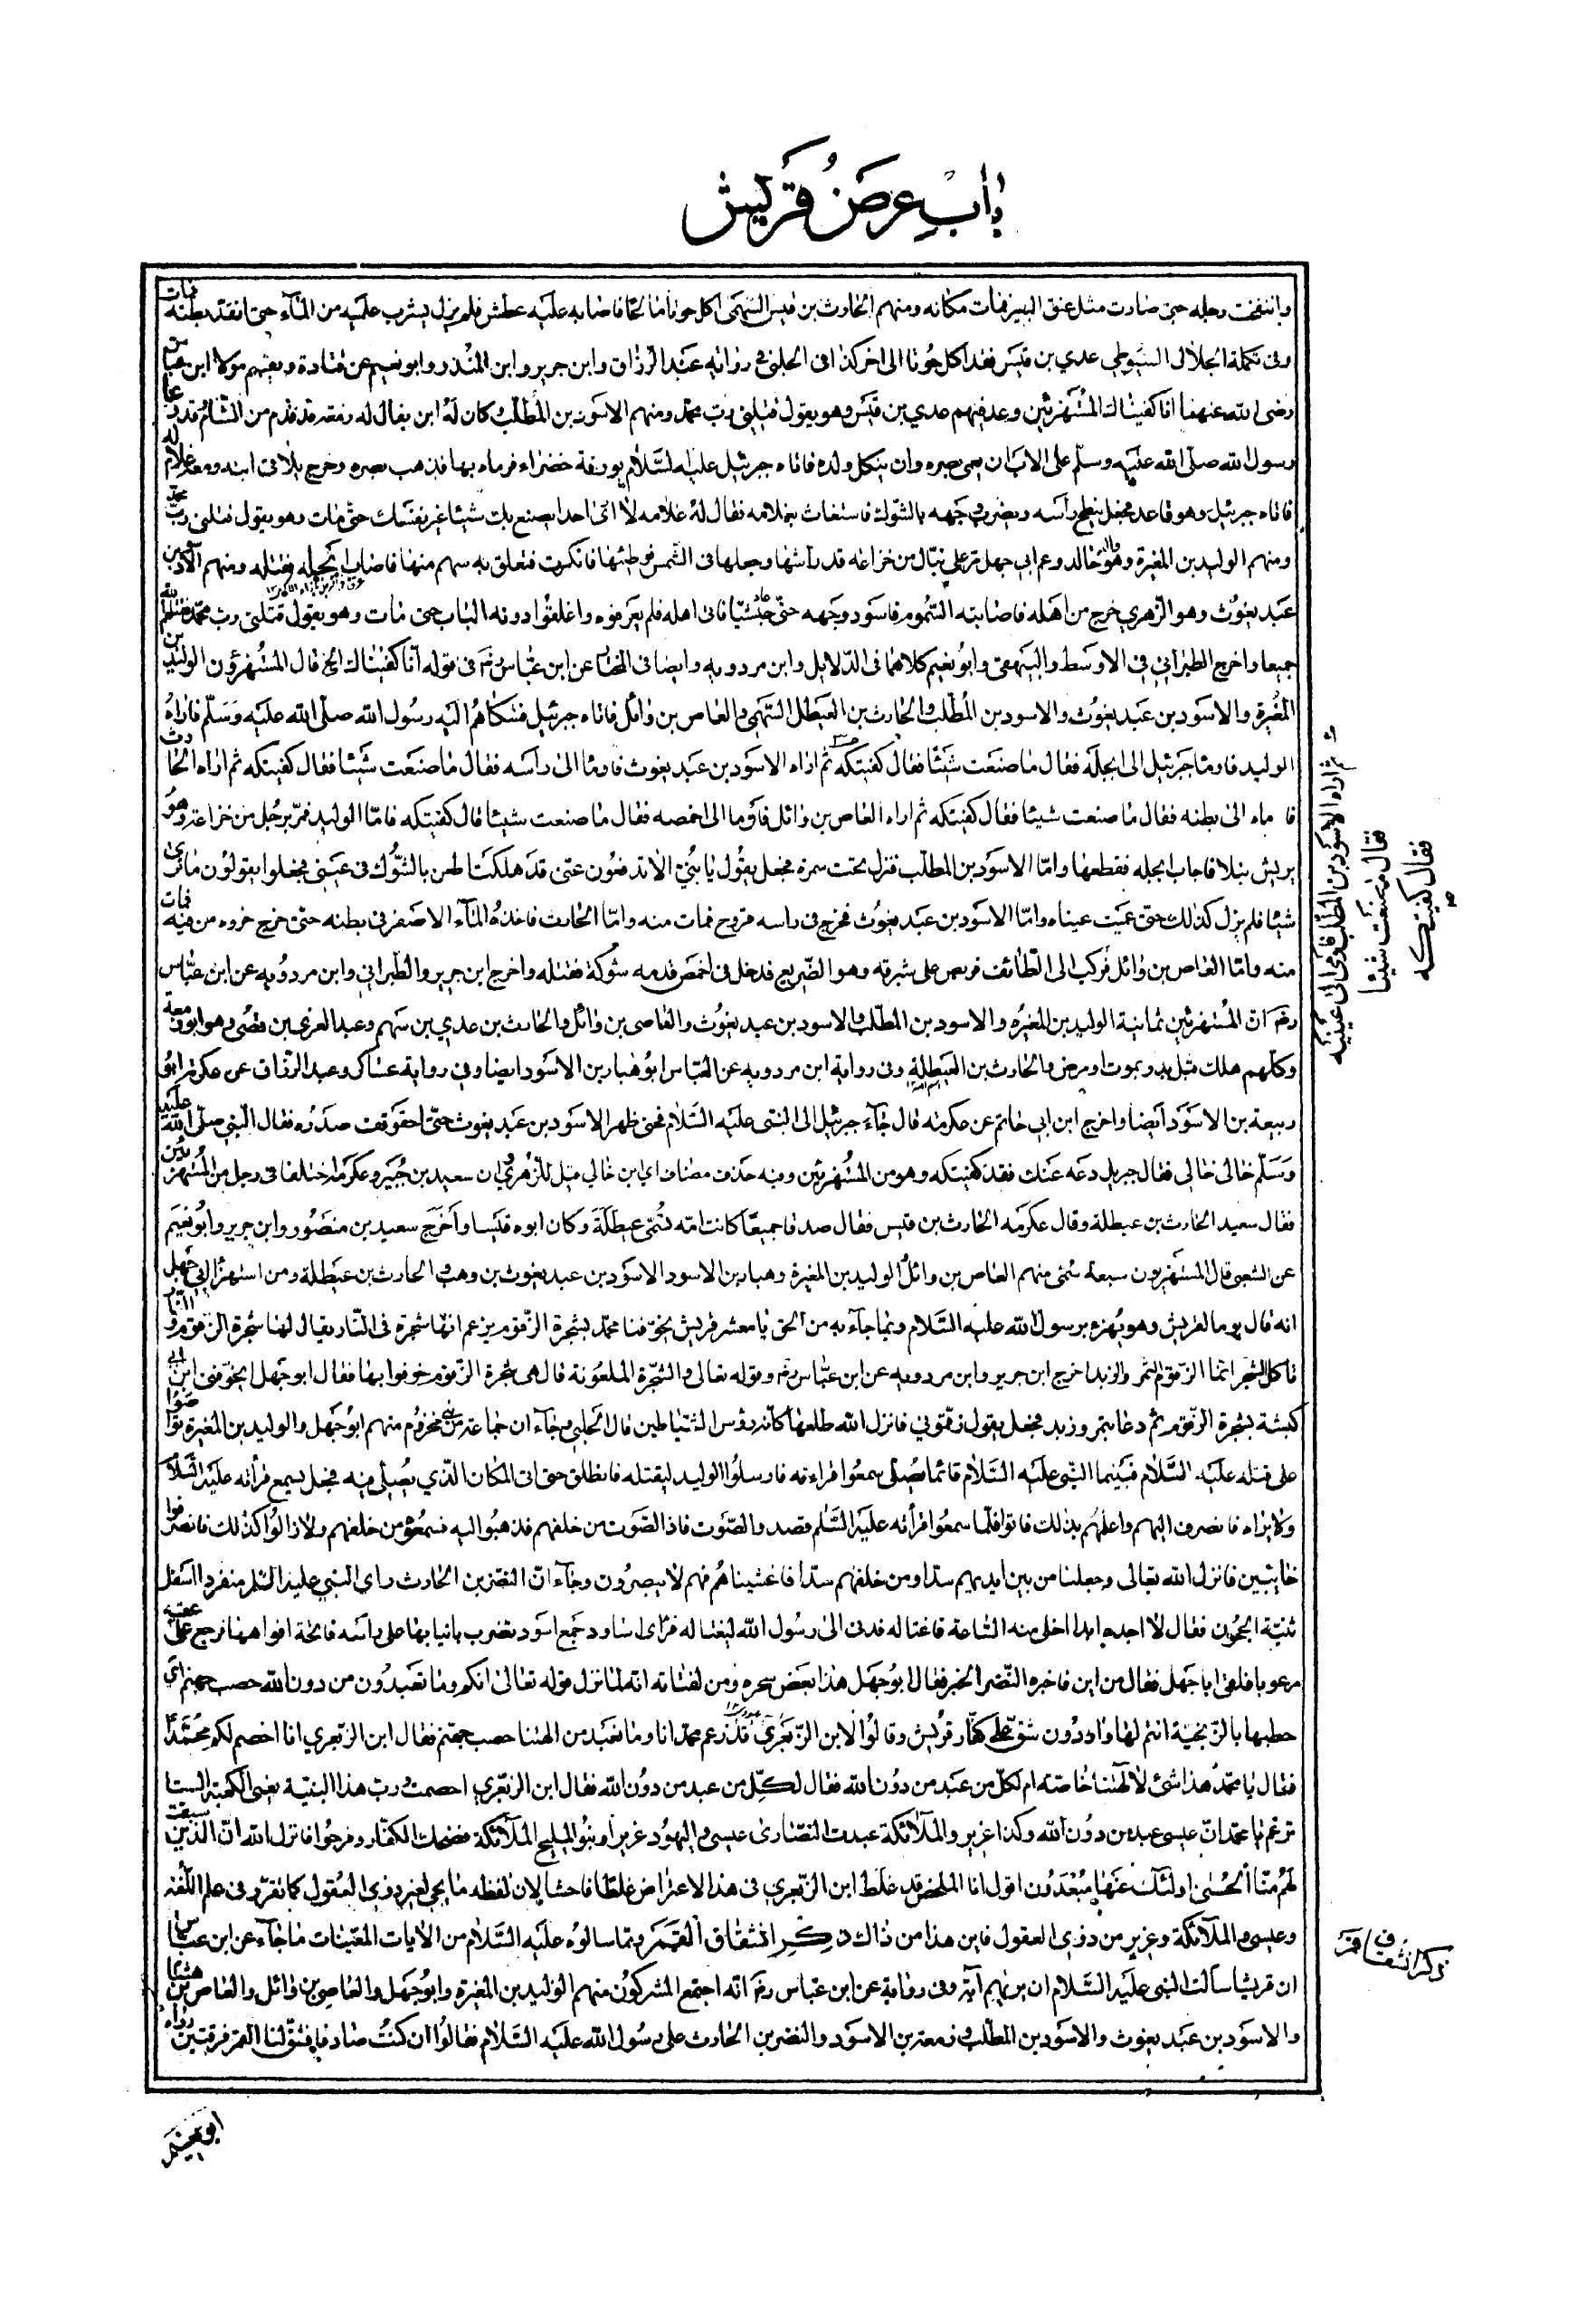 باب عرض قريش
وانتفخت رجله حتى صارت مثل عنق البعير فمات مكانه ومنهم الحارث بن قيس السهمي اكل حوتا مالحا فاصابه عليه عطش فلم يزل يشرب عليه من الماء حتى انقد بطنه فمات
وفي تكملة الجلالي السيوطي عدي بن قيس فقد اكل حوتا الى اخر كذا في الحلبي في رواية عبد الرزاق وابن جرير وابن المنذر وابو نعيم عن قتادة ومقسم مولا ابن عباس
رضى الله عنهما انا كفيناك المستهزئين وعد منهم عدي بن قيس وهو يقول قتلني رب محمد ومنهم الاسود بن المطلب وكان له ابن يقال له زمعه قد قدم من الشام وقد دعا
رسول الله صلى الله عليه وسلم على الاب ان يعمى بصره وان يثكل ولده فاتاه جبرئيل عليه السلام بورقة خضراء فرماه بها فذهب بصره وخرج يلاقي ابنه ومعه غلام له
فاتاه جبرئيل وهو قاعد فجعل ينطح رأسه ويضرب وجهه بالشوك فاستغاث بغلامه فقال له غلامه لا ارى احدا يصنع بك شيئا غير نفسك حتى مات وهو يقول قتلني رب محمد
ومنهم الوليد بن المغيرة وهو والد خالد وعم ابي جهل مر على نبال من خزاعه قد راشها وجعلها في الشمس فوطئها فانكسرت فتعلق به سهم منها فاصاب اكحله فقتله ومنهم الاسود بن
عبد يغوث وهو الزهري خرج من اهله فاصابته السموم فاسود وجهه حتى عاد حبشيا فاتى اهله فلم يعرفوه واغلقوا دونه الباب حتى مات وهو يقول قتلني رب محمد فقتلهم الله
جميعا واخرج الطبراني في الاوسط والبيهقي وابو نعيم كلاهما في الدلايل وابن مردويه وايضا في المختار عن ابن عباس رضه في قوله انا كفيناك الخ قال المستهزؤن الوليد بن
المغيرة والاسود بن عبد يغوث والاسود بن المطلب والحارث بن العيطل السهمي والعاص بن وائل فاتاه جبرئيل فشكاهم اليه رسول الله صلى الله عليه وسلم فاراه
الوليد فاومأ جبرئيل الى ابجله فقال ما صنعت شيئا فقال كفيتكه ثم اراه الاسود بن عبد يغوث فاومأ الى رأسه فقال ما صنعت شيئا فقال كفيتكه ثم اراه الحارث
فاوماه الى بطنه فقال ما صنعت شيئا فقال كفيتكه ثم اراه العاص بن وائل فاوما الى اخمصه فقال ما صنعت شيئا قال كفيتكه فاما الوليد فمر برجل من خزاعة وهو
يريش نبلا فاصاب ابجله فقطعها واما الاسود بن المطلب فنزل تحت سمرة فجعل يقول يا بني الا تدفعون عني قد هلكت اطعن بالشوك في عيني فجعلوا يقولون ما نرى
شيئا فلم يزل كذلك حتى عميت عيناه واما الاسود بن عبد يغوث فخرج في راسه قروح فمات منه واما الحارث فاخذه الماء الاصفر في بطنه حتى خرج خروه من فيه فمات
منه واما العاص بن وائل فركب الى الطائف فربص على شبرقه وهو الضريع فدخل في اخمص قدمه شوكة فقتله واخرج ابن جرير والطبراني وابن مردويه عن ابن عباس
رضه ان المستهزئين ثمانية الوليد بن المغيره والاسود بن المطلب والاسود بن عبد يغوث والعاص بن وائل والحارث بن عدي بن سهم وعبد العزى بن قصي وهو ابو زمعة
وكلهم هلك قبل بدر بموت او مرض والحارث بن العيطلة وفي رواية ابن مردويه عن العباس ابو هبار بن الاسود ايضا وفي رواية عساكر وعبد الرزاق عن عكرمة ابو
ربيعة بن الاسود ايضا واخرج ابن ابي حاتم عن عكرمة قال جاء جبرئيل الى النبي عليه السلام فحنى ظهر الاسود بن عبد يغوث حتى احقوقف صدره فقال النبي صلى الله عليه
وسلم خالي خالي فقال جبريل دعه عنك فقد كفيتكه وهو من المستهزئين وفيه حذف مضاف اي ابن خالي قيل للزهري ان سعيد بن جبير وعكرمة اختلفا في رجل من المستهزئين
فقال سعيد الحارث بن عيطلة وقال عكرمه الحارث بن قيس فقال صدقا جميعا كانت امه تسمى عيطلة وكان ابوه قيسا واخرج سعيد بن منصور وابن جرير وابو نعيم
عن الشعبي قال المستهزيون سبعة سمى منهم العاص بن وائل والوليد بن المغيرة وهبار بن الاسود والاسود بن عبد يغوث بن وهب والحارث بن عيطلة ومن استهزأ ابي جهل
انه قال يوما لقريش وهو يهزء برسول الله عليه السلام وبما جاء به من الحق يا معشر قريش يخوفنا محمد بشجرة الزقوم يزعم انها شجرة في النار يقال لها شجرة الزقوم والنار
تاكل الشجر انما الزقوم التمر والزبد اخرج ابن جرير وابن مردويه عن ابن عباس رضه وقوله تعالى والشجرة الملعونة قال هي شجرة الزقوم خوفوا بها فقال ابو جهل ايخوفني ابن ابي
كبشة بشجرة الزقوم ثم دعا بتمر وزبد فجعل يقول زقموني فانزل الله طلعها كانه رؤس الشياطين قال الحلبي وجاء ان جماعة من بني مخزوم منهم ابو جهل والوليد بن المغيرة تواصوا
على قتله عليه السلام فبينما النبي عليه السلام قائما يصلي سمعوا قراءته فارسلوا الوليد ليقتله فانطلق حتى اتى المكان الذي يصلي فيه فجعل يسمع قرأته عليه السلام
ولا يراه فانصرف اليهم واعلمهم بذلك فاتوا فلما سمعوا قرأته عليه السلم قصدوا الصوت فاذا الصوت من خلفهم فذهبوا اليه فسمعوه من خلفهم ولا زالوا كذلك فانصرفوا
خائبين فانزل الله تعالى وجعلنا من بين ايديهم سدا ومن خلفهم سدا فاغشيناهم فهم لا يبصرون وجاء ان النضر بن الحارث راى النبي عليه السلم منفردا اسفل
ثنية الحجون فقال لا اجده ابدا اخلى منه الساعة فاغتاله فدنى الى رسول الله ليغتاله فراى اساود جمع اسود تضرب بانيابها على راسه فاتحة افواهها فرجع على عقبه
مرعوبا فلقي ابا جهل فقال من اين فاخبره النضر الخبر فقال ابو جهل هذا بعض سحره ومن لغتاته انه لما نزل قوله تعالى انكم وما تعبدون من دون الله حصب جهنم اي
حطبها بالزنجية انتم لها واردون شق على كفار قريش وقالوا لابن الزبعرى قد زعم محمد انا وما نعبد من الهتنا حصب جهنم فقال ابن الزبعري انا اخصم لكم محمدا
فقال يا محمد هذا شئ لالهتنا خاصة ام لكل من عبد من دون الله فقال لكل من عبد من دون الله فقال ابن الزبعري اخصمت ورب هذا البنية يعني الكعبة الست
تزعم يا محمد ان عيسى عبد من دون الله وكذا عزير والملائكة عبدت النصارى عيسى واليهود عزيرا وبنو المليح الملائكة فضحك الكفار وفرحوا فانزل الله ان الذين سبقت
لهم منا الحسنى اولئك عنها مبعدون اقول انا الملخص قد غلط ابن الزبعري في هذا الاعتراض غلطا فاحشا لان لفظه ما يجي لغير ذوي العقول كما تقرر في علم اللغه
وعيسى والملائكة وعزير من ذوي العقول فاين هذا من ذاك ذكر انشقاق القمر ومما سالوه عليه السلام من الايات المعينات ما جاء عن ابن عباس
ان قريشا سألت النبي عليه السلام ان يريهم آية وفي رواية عن ابن عباس رضه انه اجتمع المشركون منهم الوليد بن المغيره وابو جهل والعاصي بن وائل والعاص بن هشام
والاسود بن عبد يغوث والاسود بن المطلب وزمعة بن الاسود والنضر بن الحارث على رسول الله عليه السلام فقالوا ان كنت صادقا فشق لنا القمر فرقتين رواه
ثم اراه الاسود بن المطلب فاومى الى عينيه
فقال ما صنعت شيئا
فقال كفيتكه
ذكر انشقاق قمر
ابو نعيم